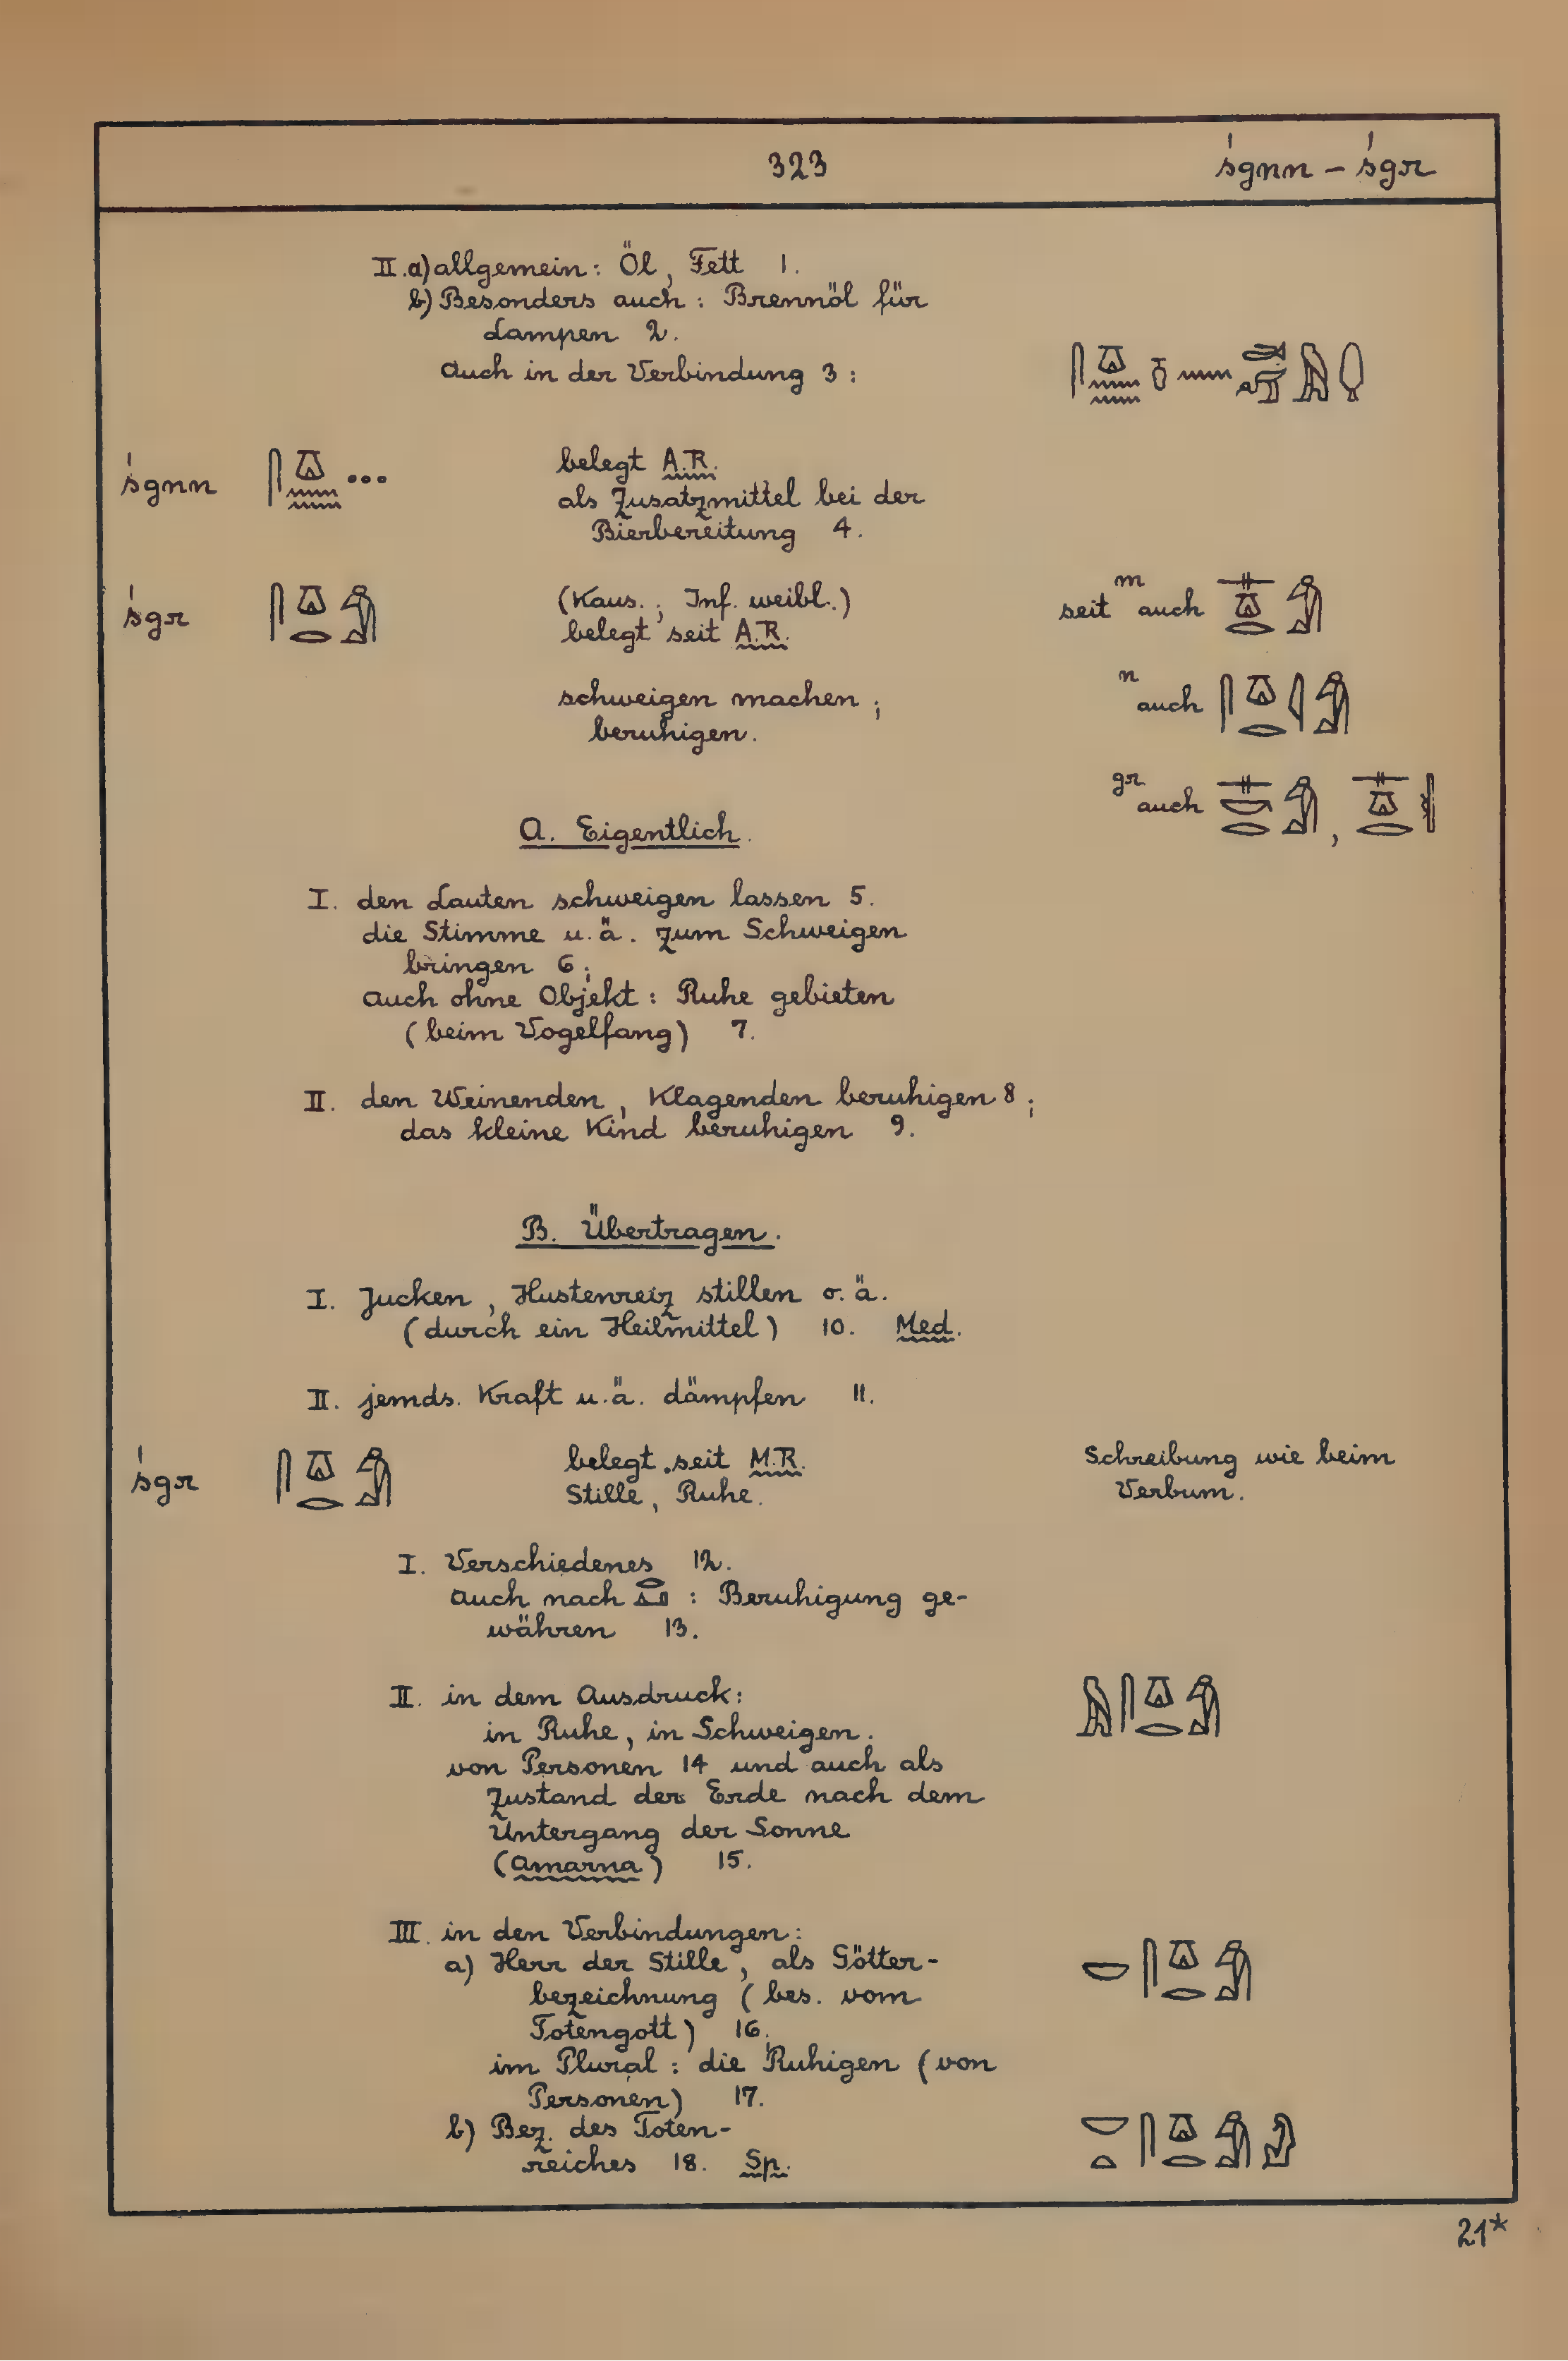 323 śgnn – śgr
II. a) allgemein: Öl, Fett 1.
b) Besonders auch: Brennöl für
Lampen 2.
Auch in der Verbindung 3:
śgnn belegt A.R.
als Zusatzmittel bei der
Bierbereitung 4.
śgr (Kaus.; Inf. weibl.)
belegt seit A.R.
seit m auch
schweigen machen;
beruhigen.
n auch
gr auch ,
A. Eigentlich.
I. den Lauten schweigen lassen 5.
die Stimme u.ä. zum Schweigen
bringen 6;
auch ohne Objekt: Ruhe gebieten
(beim Vogelfang) 7.
II. den Weinenden, Klagenden beruhigen 8;
das kleine Kind beruhigen 9.
B. Übertragen.
I. Jucken, Hustenreiz stillen o.ä.
(durch ein Heilmittel) 10. Med.
II. jemds. Kraft u.ä. dämpfen 11.
śgr belegt seit M.R. Schreibung wie beim
Stille, Ruhe. Verbum.
I. Verschiedenes 12.
auch nach : Beruhigung ge-
währen 13.
II. in dem Ausdruck:
in Ruhe, in Schweigen.
von Personen 14 und auch als
Zustand der Erde nach dem
Untergang der Sonne
(Amarna) 15.
III. in den Verbindungen:
a) Herr der Stille, als Götter-
bezeichnung (bes. vom
Totengott) 16;
im Plural: die Ruhigen (von
Personen) 17.
b) Bez. des Toten-
reiches 18. Sp.
21*